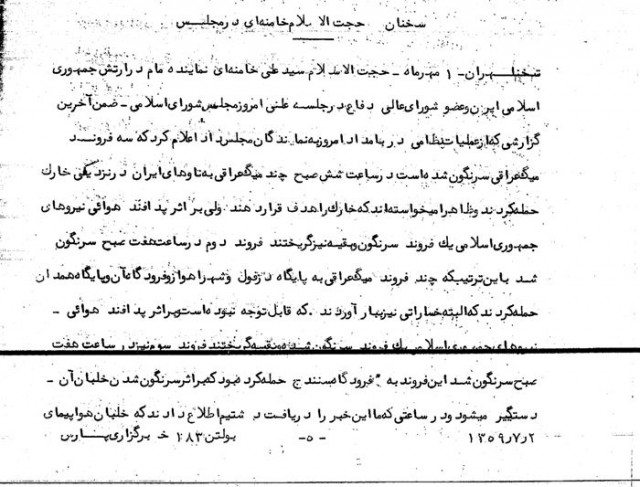 سخنان حجت الاسلام خامنه ای در مجلس
تهران - ۱ مهرماه - حجت الاسلام سید علی خامنه ای نماینده امام در ارتش جمهوری
اسلامی ایران وعضو شورای عالی دفاع در جلسه علنی امروز مجلس شورای اسلامی - ضمن آخرین
گزارشی که از عملیات نظامی در بامداد امروز به نمایندگان مجلس داد اعلام کرد که سه فروند
میگ عراقی سرنگون شده است در ساعت شش صبح چند میگ عراقی به ناوهای ایران در نزدیکی خارک
حمله کردند وظاهرا میخواسته اند که خارک را هدف قرار دهند ولی بر اثر پدافند هوائی نیروهای
جمهوری اسلامی یک فروند سرنگون وبقیه نیز گریختند فروند دوم در ساعت هفت صبح سرنگون
شد باین ترتیب که چند فروند میگ عراقی به پایگاه دزفول وشهر اهواز وفرودگاه آن وپایگاه همدان
حمله کردند که البته خساراتی نیز ببار آوردند . که قابل توجه نبوده است وبراثر پدافند هوائی -
نیروهای جمهوری اسلامی یک فروند سرنگون شد وبقیه گریختند فروند سوم نیز در ساعت هفت
صبح سرنگون شد این فروند به فرودگاه سنندج حمله کرده بود که بر اثر سرنگون شدن خلبان آن -
دستگیر میشود ودر ساعتی که ما این خبر را دریافت داشتیم اطلاع دادند که خلبان هواپیمای
۱۳۵۹ر۷ر۲ -۵- بولتن ۱۸۳ خبرگزاری پارس